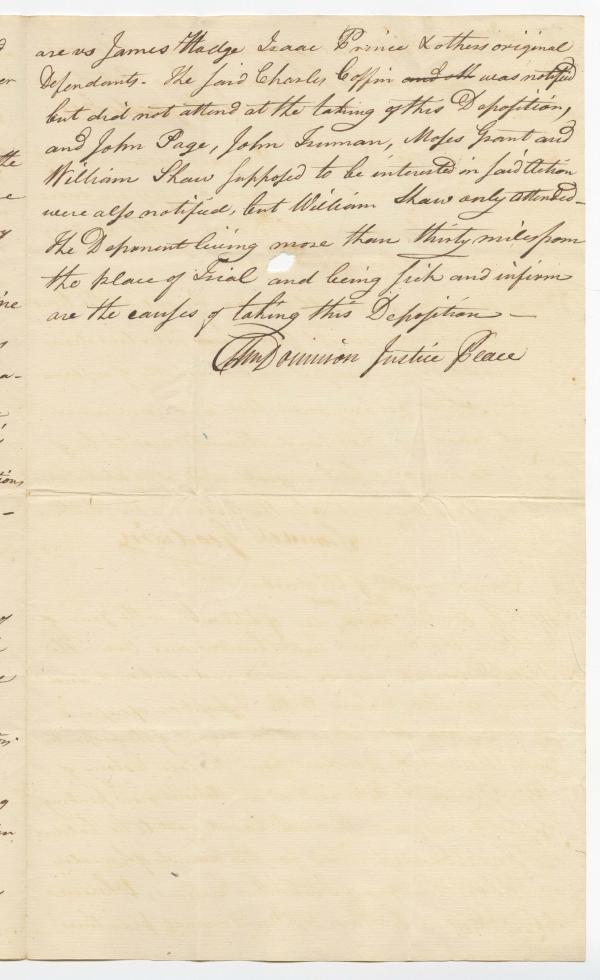 are vs James Wadge Isaac Prince & others original
Defendants - The said Charles Coffin and oth was notified
but did not attend at the taking of this Deposition,
and John Page, John Truman, Moses Grant and
William Shaw supposed to be interested in said Action
were also notified, but William Shaw only attended -
The Deponent living more than thirty miles from
the place of Trial and being sick and infirm
are the causes of taking this Deposition -
Justice Peace